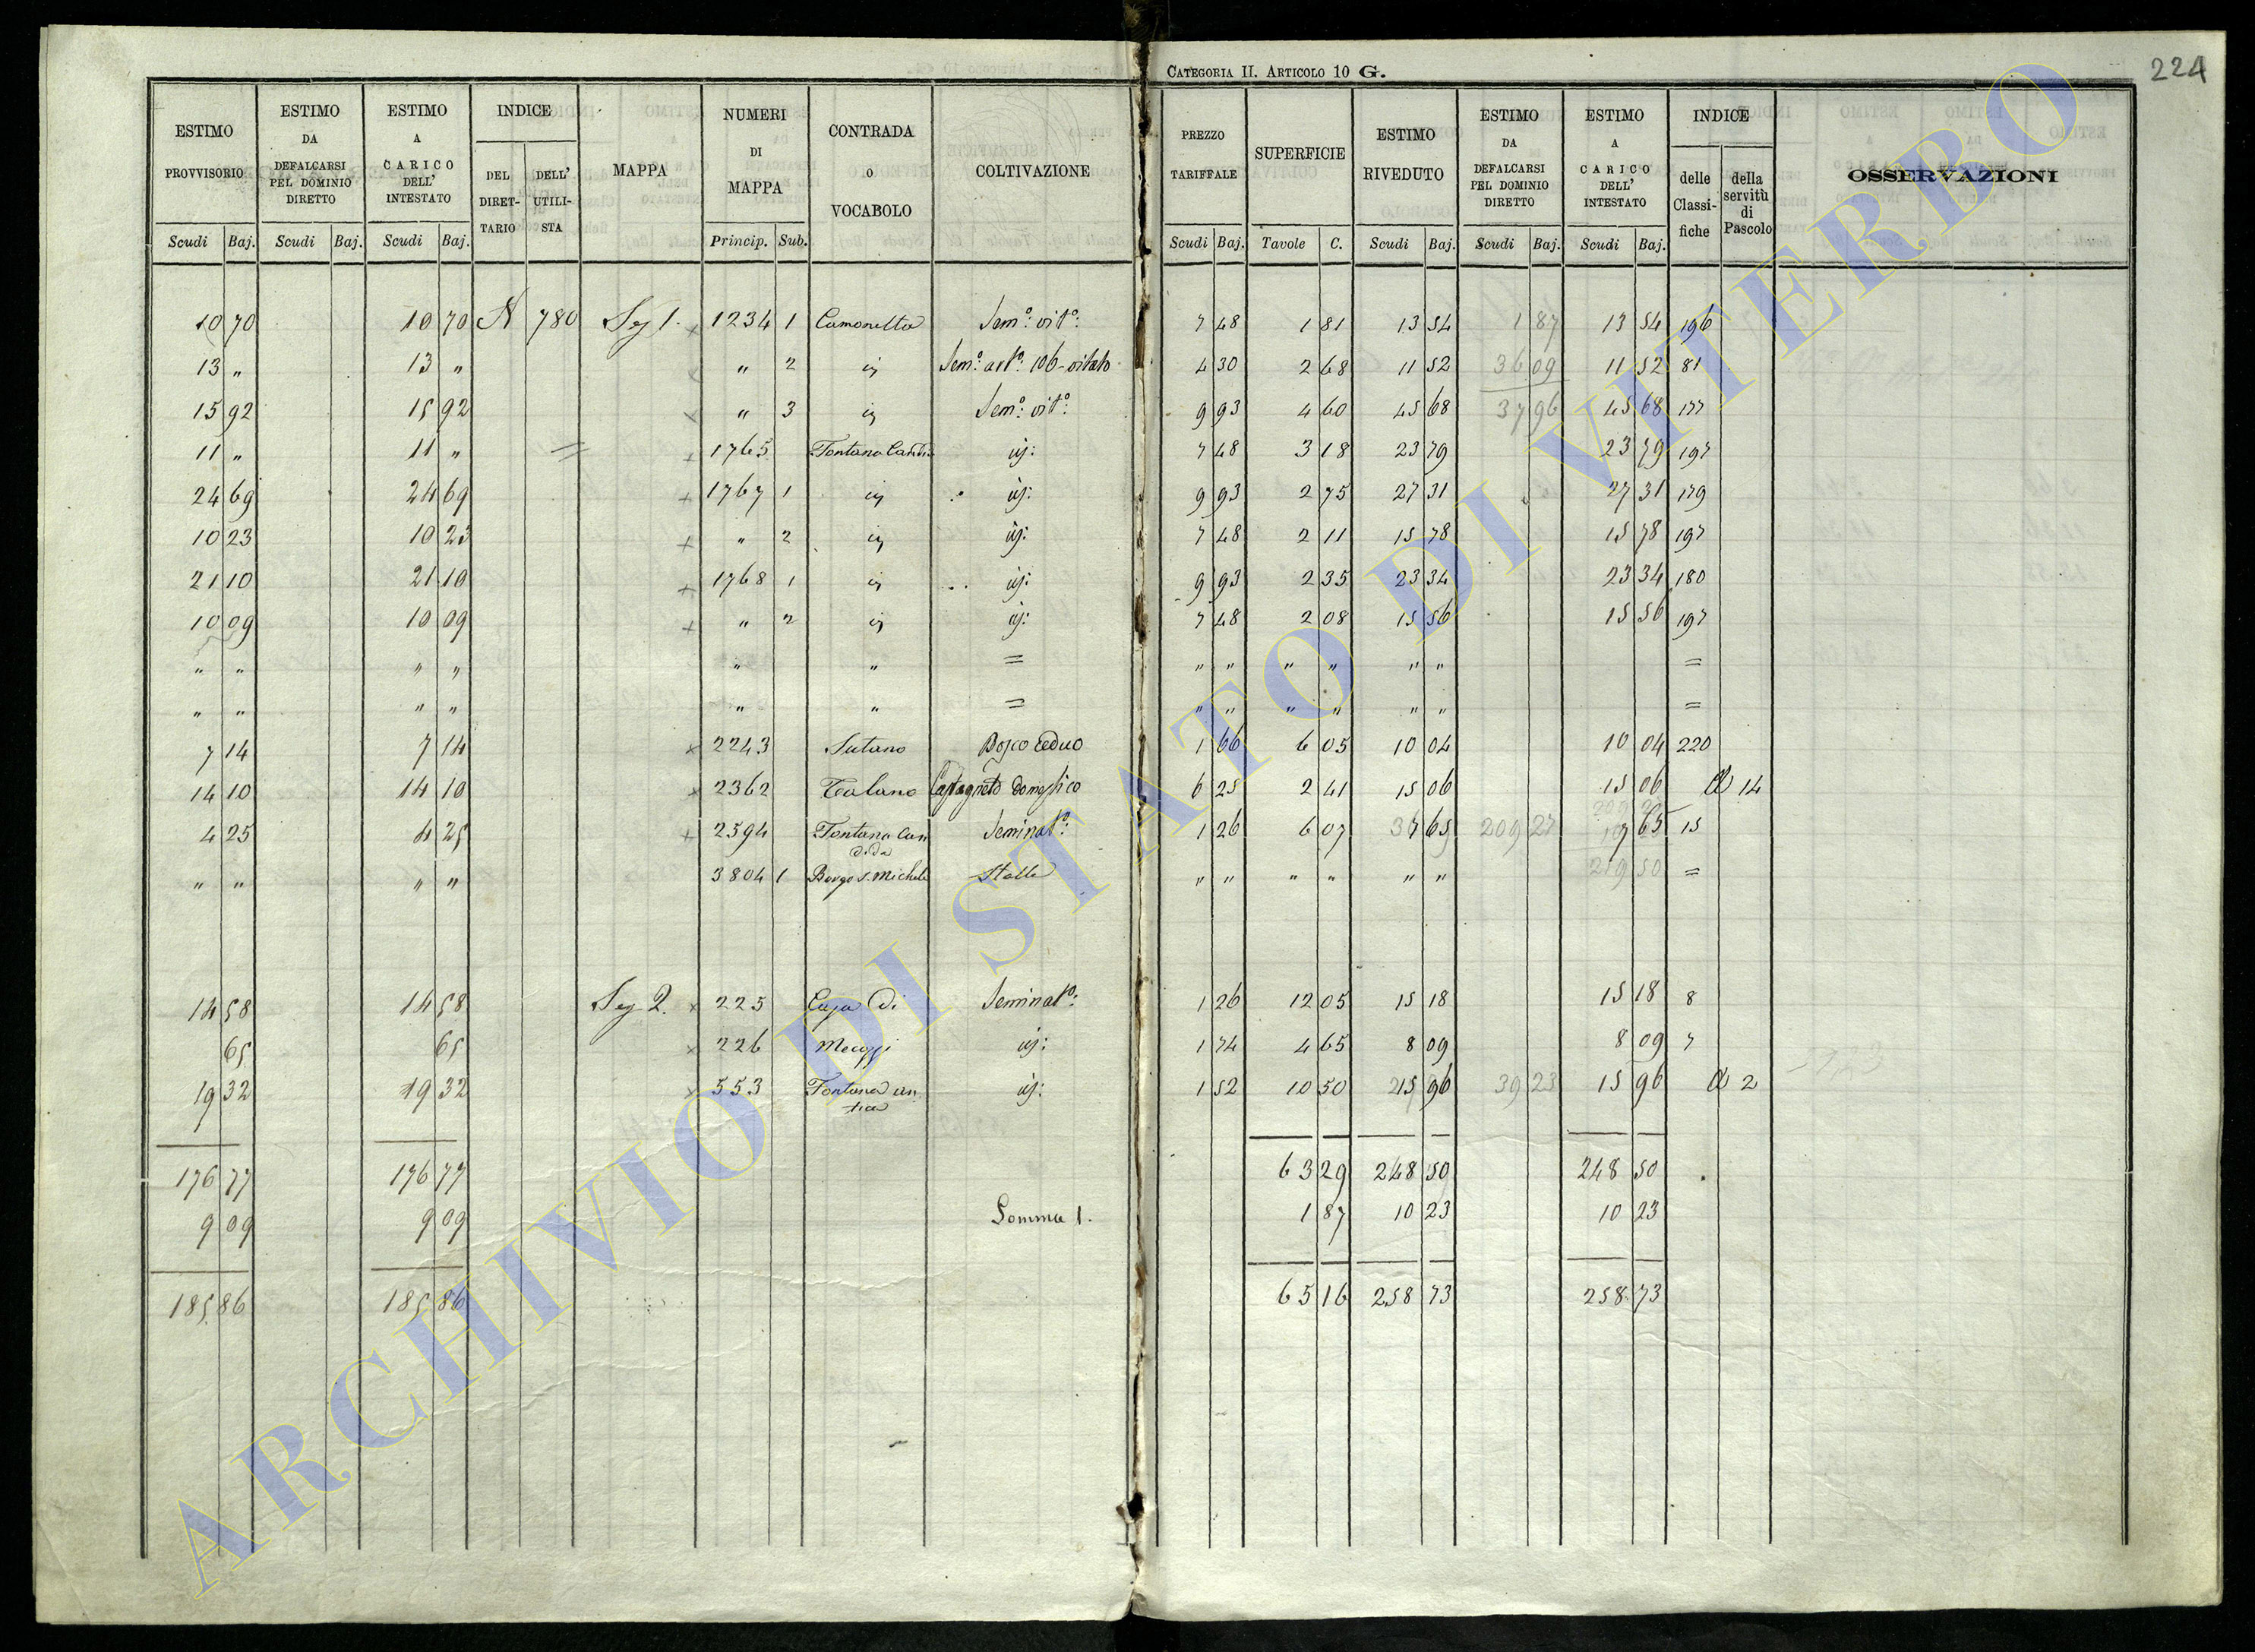 CATEGORIA II. ARTICOLO 10 G.
224
ESTIMO PROVVISORIO | ESTIMO DA DEFALCARSI PEL DOMINIO DIRETTO | ESTIMO A CARICO DELL' INTESTATO | INDICE DEL DIRET-TARIO | DELL' UTILI-STA | MAPPA | NUMERI DI MAPPA | CONTRADA O VOCABOLO | COLTIVAZIONE | PREZZO TARIFFALE | SUPERFICIE | ESTIMO RIVEDUTO | ESTIMO DA DEFALCARSI PEL DOMINIO DIRETTO | ESTIMO A CARICO DELL' INTESTATO | INDICE delle Classi-fiche | della servitù di Pascolo | OSSERVAZIONI
Scudi Baj. | Scudi Baj. | Scudi Baj. | Princip. Sub. | Scudi Baj. | Tavole C. | Scudi Baj. | Scudi Baj. | Scudi Baj.
10 70 | 10 70 | N 780 | Sez 1. | x 1234 1 | Camonetta | Sem.o vit.o: | 7 48 | 1 81 | 13 54 | 1 87 | 13 54 | 196
13 " | 13 " | x " 2 | iɜ | Sem.o art.o: 106 vitato | 4 30 | 2 68 | 11 52 | 36 09 | 11 52 | 81
15 92 | 15 92 | x " 3 | iɜ | Sem.o vit.o: | 9 93 | 4 60 | 45 68 | 37 96 | 45 68 | 177
11 " | 11 " | = | + 1765 | Fontana Candi | iɜ: | 7 48 | 3 18 | 23 79 | 23 79 | 197
24 69 | 24 69 | + 1767 1 | iɜ | iɜ: | 9 93 | 2 75 | 27 31 | 27 31 | 179
10 23 | 10 23 | + " 2 | iɜ | iɜ: | 7 48 | 2 11 | 15 78 | 15 78 | 197
21 10 | 21 10 | + 1768 1 | iɜ | iɜ: | 9 93 | 2 35 | 23 34 | 23 34 | 180
10 09 | 10 09 | + " 2 | iɜ | iɜ: | 7 48 | 2 08 | 15 56 | 15 56 | 197
" " | " " | " | " | = | " " | " " | " " | =
" " | " " | " | " | = | " " | " " | " " | =
7 14 | 7 14 | x 2243 | Sutano | Bosco Ceduo | 1 66 | 6 05 | 10 04 | 10 04 | 220
14 10 | 14 10 | x 2362 | Talano | Castagneto domestico | 6 25 | 2 41 | 15 06 | 15 06 | A 14
4 25 | 4 25 | + 2594 | Fontana Can dida | Seminat.o: | 1 26 | 6 07 | 7 65 | 209 27 | 7 65 | 15
" " | " " | 3804 1 | Borgo S. Michele | Stalla | " " | " " | " " | 219 50 | =
14 58 | 14 58 | Sez 2. | x 225 | Casa di | Seminat.o: | 1 26 | 12 05 | 15 18 | 15 18 | 8
65 | 65 | x 226 | Meozzi | iɜ: | 1 74 | 4 65 | 8 09 | 8 09 | 7
19 32 | 19 32 | x 553 | Fontana an tica | iɜ: | 1 52 | 10 50 | 15 96 | 39 23 | 15 96 | A 2
176 77 | 176 77 | 63 29 | 248 50 | 248 50
9 09 | 9 09 | Somma 1. | 1 87 | 10 23 | 10 23
185 86 | 185 86 | 65 16 | 258 73 | 258 73
ARCHIVIO DI STATO DI VITERBO